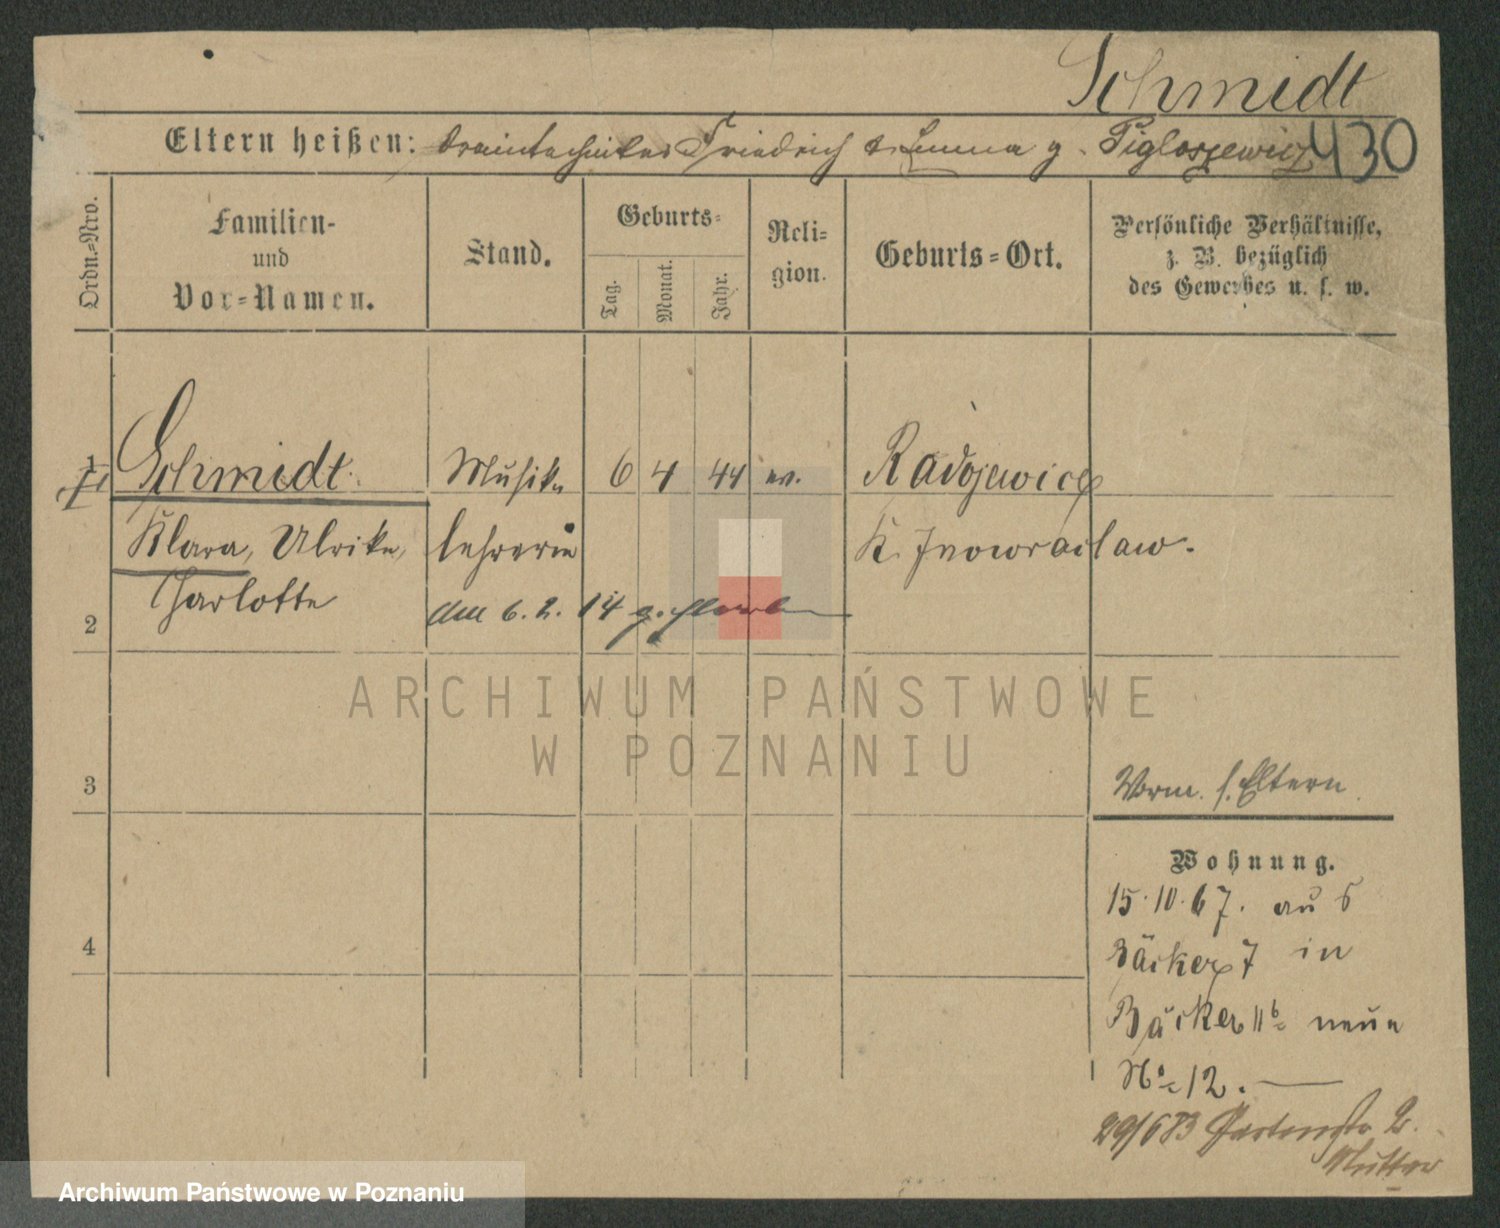 Schmidt
430
Eltern heißen: Draintechniker Friedrich & Emma g. Pigloszewicz
Ordn.=Nro.
Familien-
und
Vor=Namen.
Stand.
Geburts=
Tag.
Monat.
Jahr.
Reli=
gion.
Geburts=Ort.
Persönliche Verhältnisse,
z. B. bezüglich
des Gewerbes u. s. w.
1 Schmidt Musik 6 4 44 ev. Radojewice
Klara, Ulrike, lehrerin K. Inowraclaw.
Charlotte
am 6. 2. 14 gestorben
2
ARCHIWUM PAŃSTWOWE
W POZNANIU
3
Vorm. s. Eltern
Wohnung.
15.10.67. aus
Bäcker 7 in
Bäcker 11b neue
No 12.
29/6 83 Gartenstr 2.
Mutter
4
Archiwum Państwowe w Poznaniu